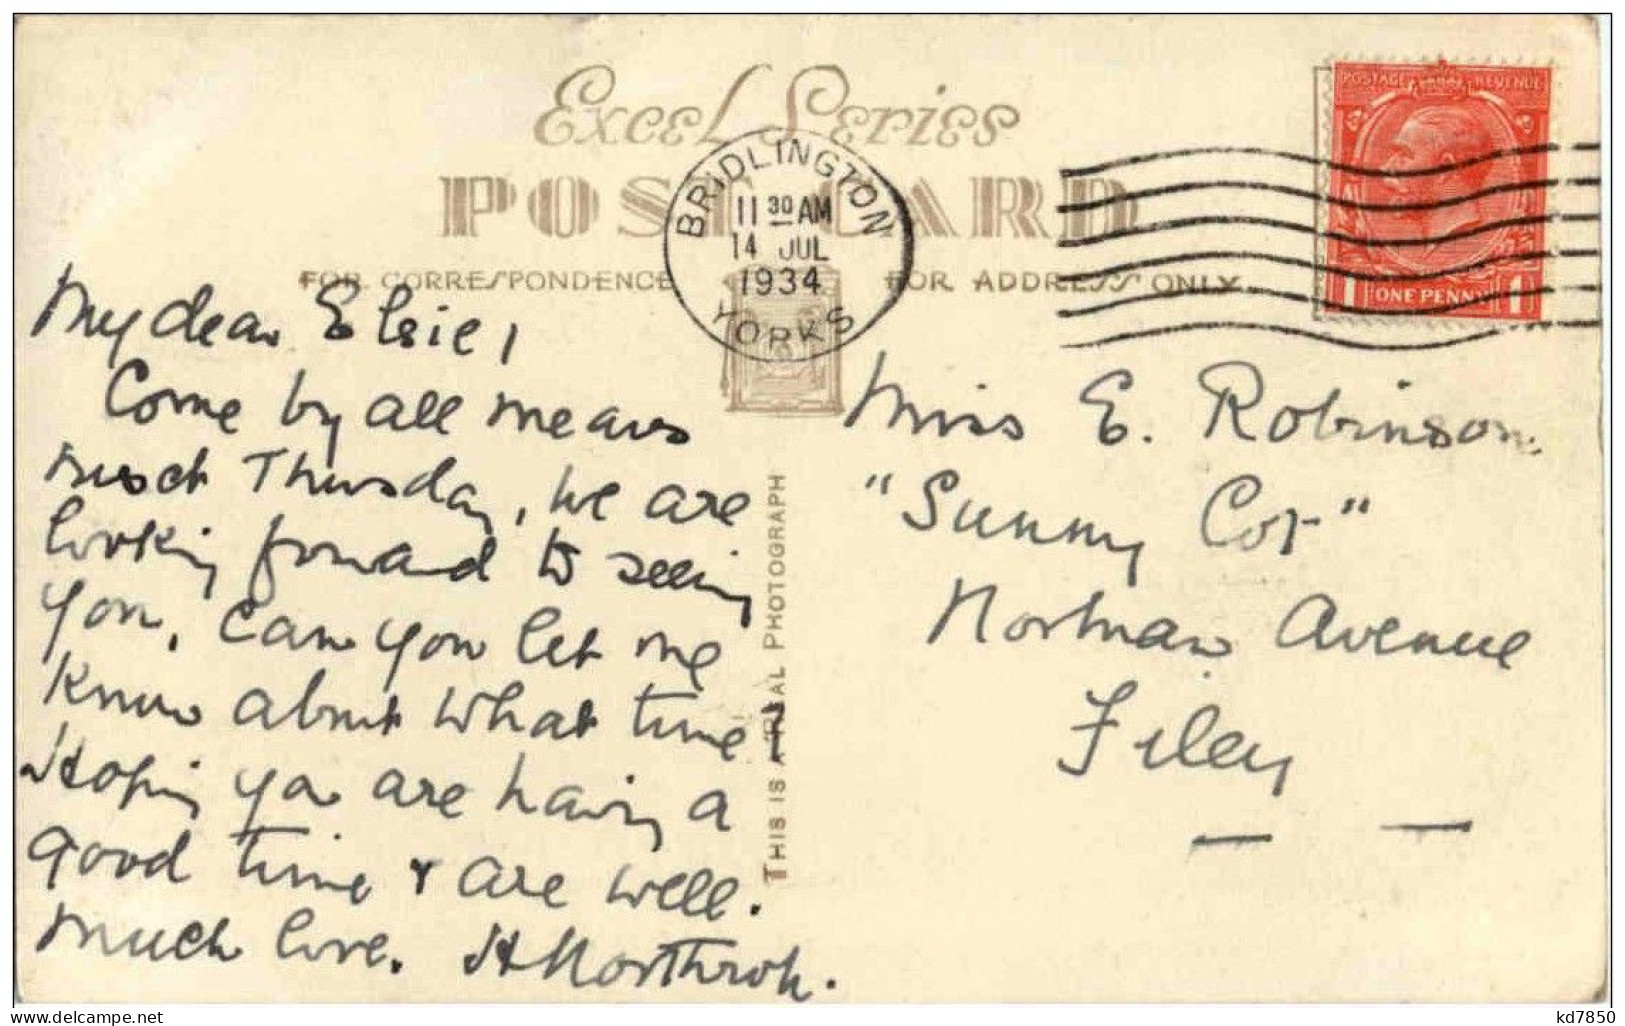 Excel Series
POST CARD
FOR CORRESPONDENCE
FOR ADDRESS ONLY
BRIDLINGTON
11 30 AM
14 JUL
1934
YORKS
POSTAGE REVENUE
1 ONE PENNY 1
My dear Elsie,
Come by all means
next Thursday, we are
looking forward to seeing
you. Can you let me
know about what time?
Hoping you are having a
good time & are well.
Much love. H Northrop.
THIS IS A REAL PHOTOGRAPH
Miss E. Robinson.
"Sunny Cot"
Norman Avenue
Filey
delcampe.net
kd7850